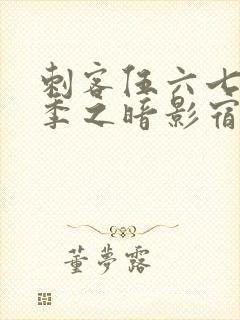 刺客伍六七
季之暗影宿
董梦露